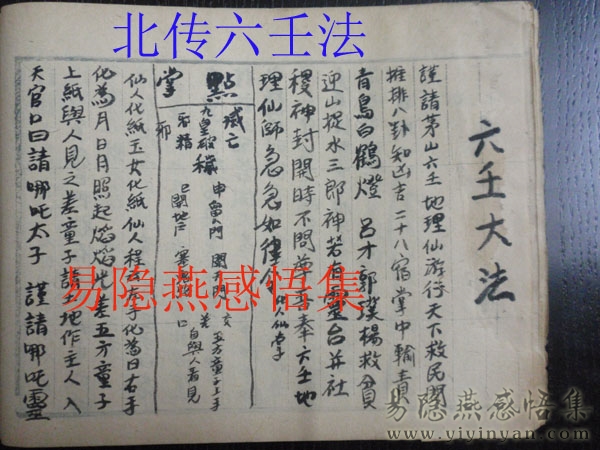 北传六壬法
六壬大法
謹請茅山六壬地理仙游行天下救民間
推排八卦知凶吉二十八宿掌中輪青
青鳥白鶴燈 呂才郭璞楊救貧
迎山捉水三郎神若有靈台并社
稷神封開時不問尊吾奉六壬地
理仙師急急如律令
點
掌
滅亡
九皇破穢
邪精
申留人門
開
已閉地戶
塞
五方童子上手
自與人看見
仙人化紙玉女化紙仙人程去左手化為日右手
化為月日月照起焰焰光差五方童子
上紙與人見之差童子請土地作主人入
天官口曰請哪吒太子 謹請哪吒靈
易隐燕感悟集
易隐燕感悟集
www.yiyinyan.com